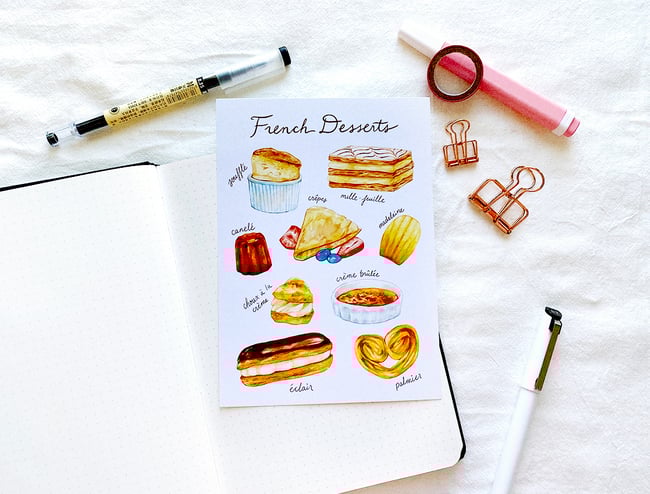 French Desserts
soufflé
crêpes
mille-feuille
canelé
madeleine
choux à la
crème
crème brûlée
éclair
palmier